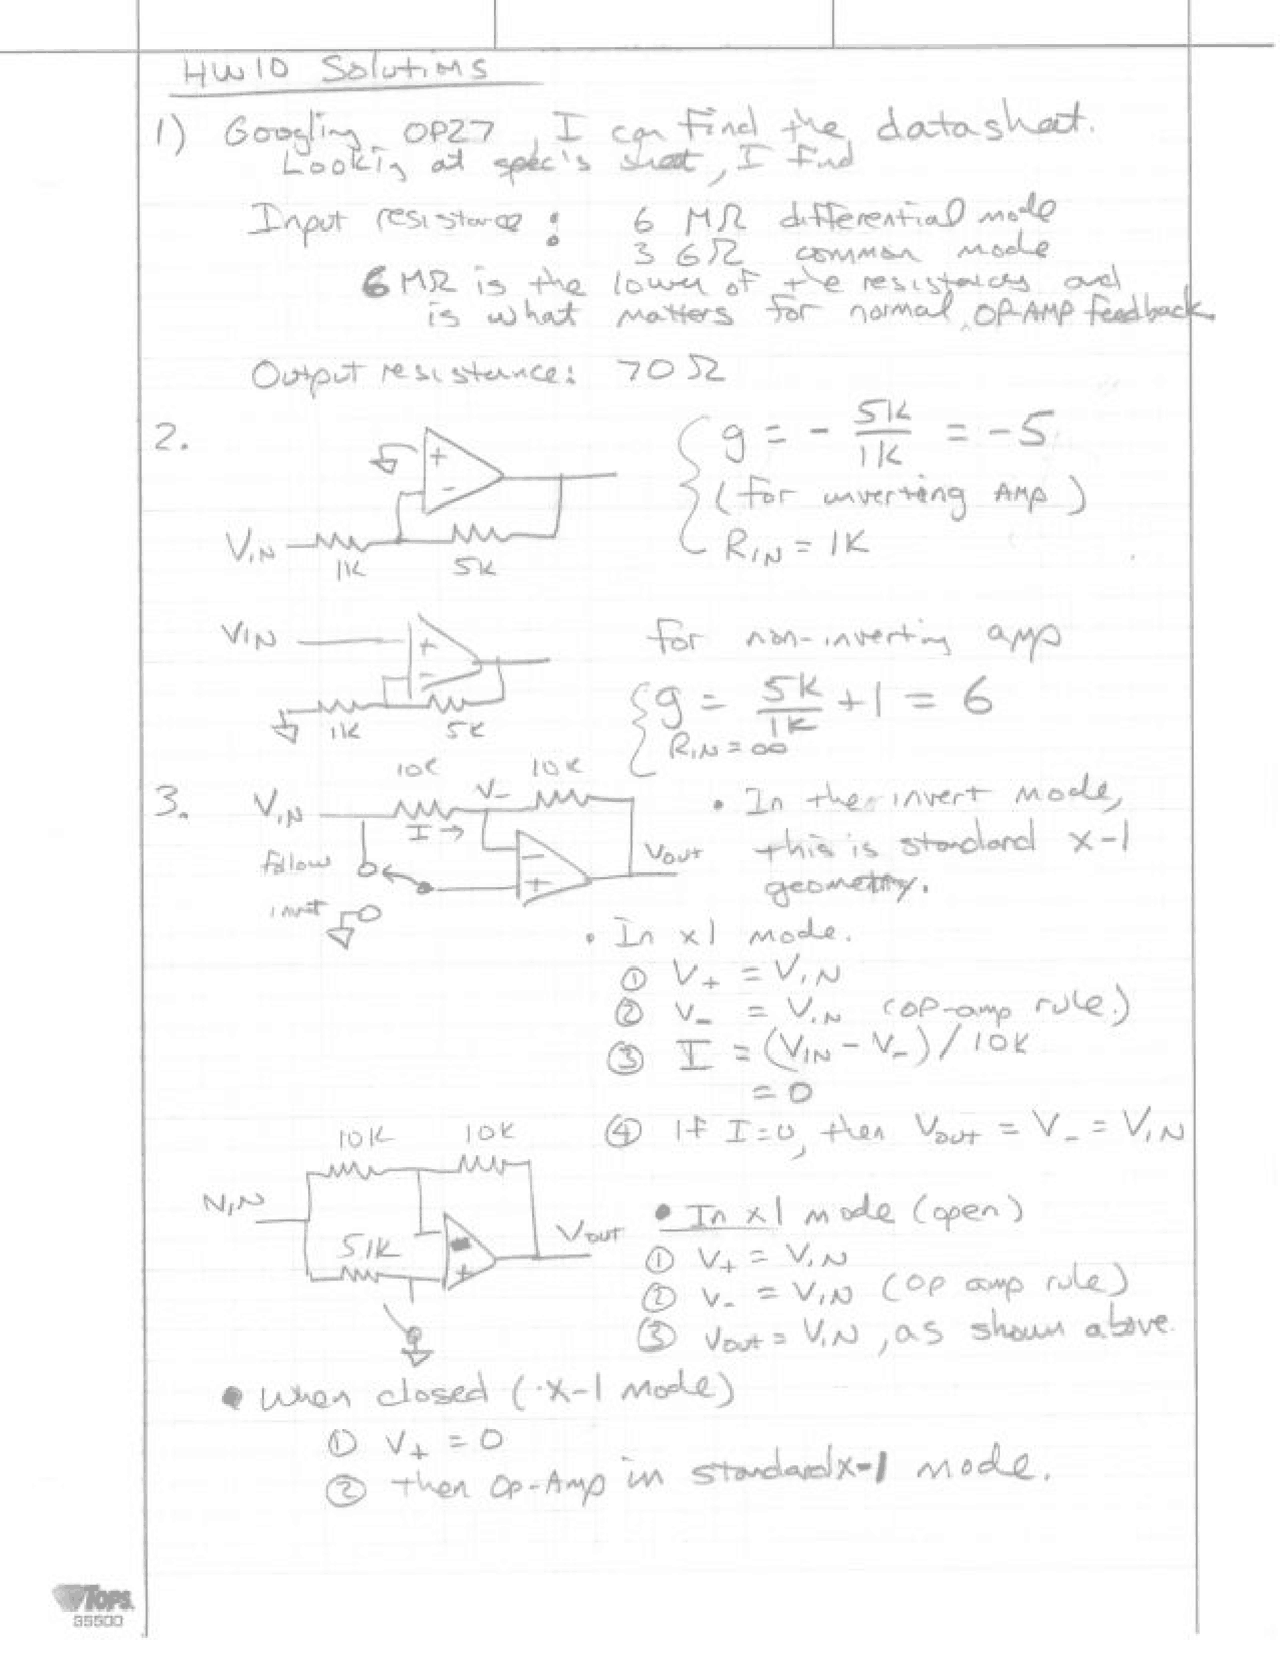 HW10 Solutions
1) Googling OP27, I can find the datasheet.
Looking at spec's sheet, I find
Input resistance: 6 MΩ differential mode
3 GΩ common mode
6 MΩ is the lower of the resistances and
is what matters for normal OP-AMP feedback.
Output resistance: 70 Ω
2.
+
-
VIN
1K
5K
g = - 5K/1K = -5
(for inverting AMP)
RIN = 1K
VIN
+
-
1K
5K
for non-inverting amp
g = 5K/1K + 1 = 6
RIN = ∞
3.
10K
10K
VIN
V-
I →
follow
invert
-
+
Vout
• In the invert mode,
this is standard x-1
geometry.
• In x1 mode.
① V+ = VIN
② V- = VIN (op-amp rule.)
③ I = (VIN - V-) / 10K
= 0
④ If I=0, then Vout = V- = VIN
10K
10K
VIN
51K
+
Vout
• In x1 mode (open)
① V+ = VIN
② V- = VIN (op amp rule)
③ Vout = VIN, as shown above.
• When closed (x-1 mode)
① V+ = 0
② then Op-Amp in standard x-1 mode.
TOPS
35500